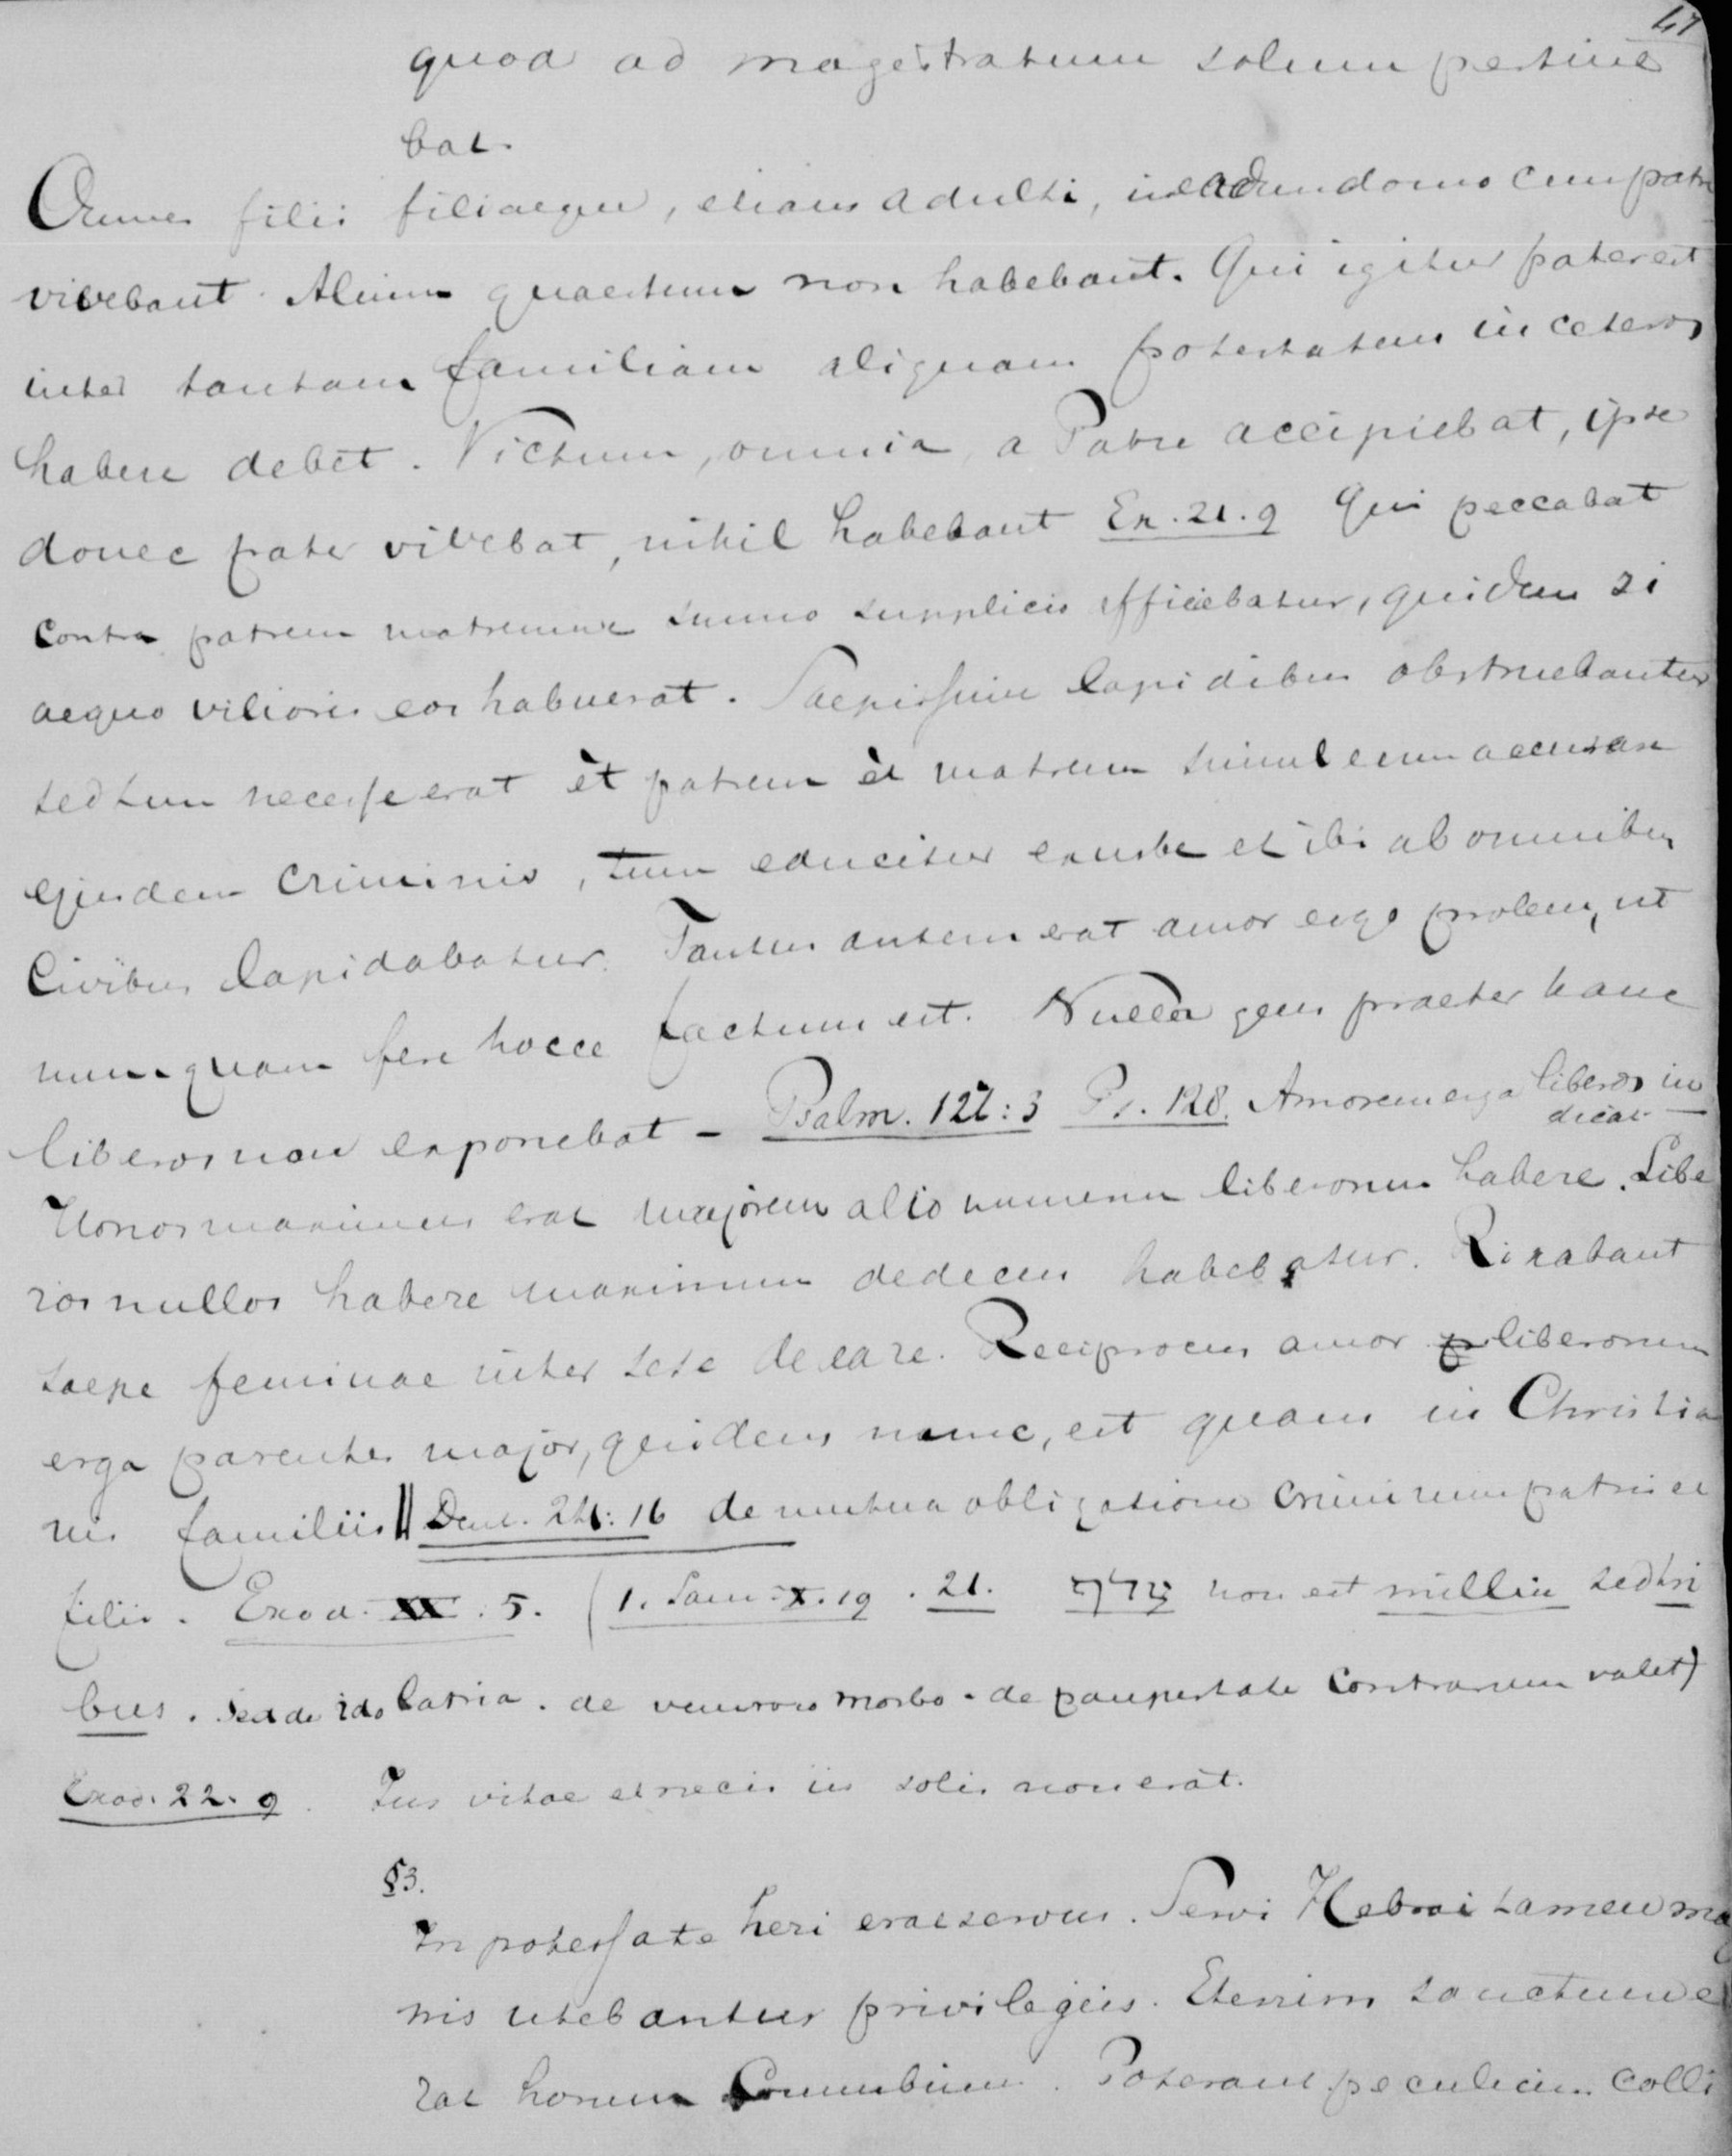 47
quod ad magistratum solum pertine
bat.
Omnes filii filiaeque, etiam adulti, in domo cum patre
vivebant. Alium quaestum non habebant. Qui igitur pater est
inter tantam familiam aliquam potestatem in ceteros
habere debet. Victum, omnia, a Patre accipiebat, ipse
donec pater vivebat, nihil habebant Ex. 21. 9 Qui peccabat
contra patrem matremve summo supplicio afficiebatur, quidem si
aequo viliores eos habuerat. Saepissime lapidibus obstruebantur
sed tum necesse erat èt patrem èt matrem simul eum accusare
ejusdem criminis, tum educitur ex urbe et ibi ab omnibus
Civibus lapidabatur. Tantus autem erat amor ergo prolem, ut
numquam fere hocce factum est. Nulla gens praeter hanc
liberos non exponebat - Psalm. 127:3 Ps. 128. Amorem erga liberos in
dicat
Honos maximus erat majorem alio numerum liberorum habere. Libe
ros nullos habere maximum dedecus habebatur. Rixabant
saepe feminae inter sese de ea re. Reciprocus amor liberorum
erga parentes major, quidem nunc, est quam in Christia
nis familiis || Deut. 24:16 de mutua obligatione criminum patris et
filii. Exod. XX. 5. (1. Sam. X. 19. 21. non est millia sed tri
bus. sed de idolatria. de venereo morbo - de paupertate contrarium valet)
Exod. 22. 9. Jus vitae et necis iis solis non erat.
§3.
In potestate heri erat servus. Servi Hebraei tamen mag
nis utebantur privilegiis. Etenim sanctum e
rat horum Connubium. Poterant peculium colli